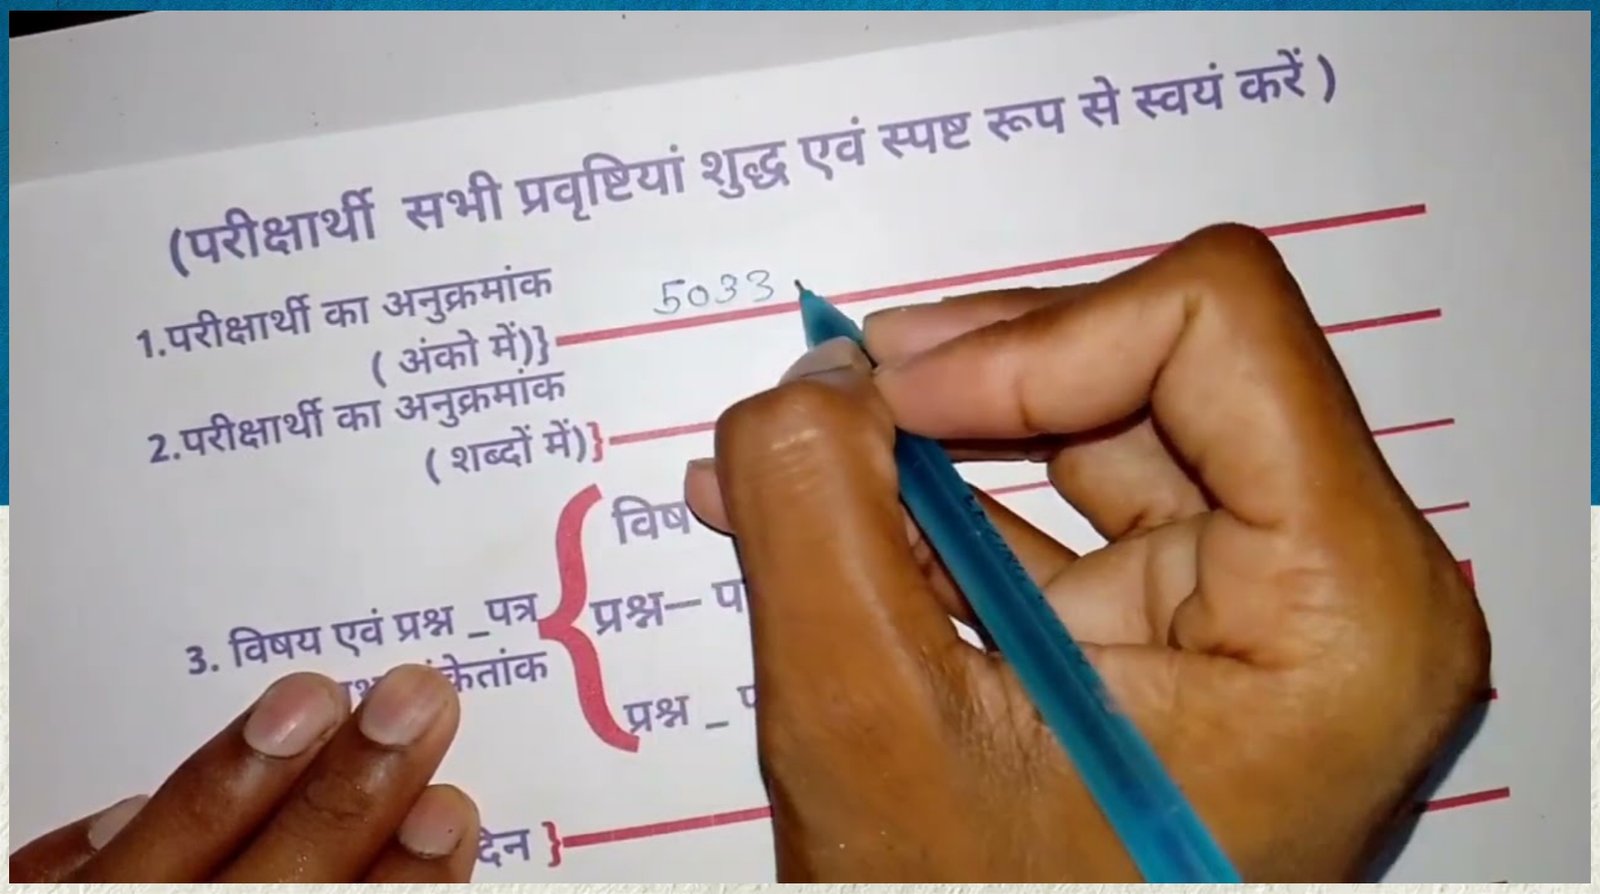 (परीक्षार्थी सभी प्रवृष्टियां शुद्ध एवं स्पष्ट रूप से स्वयं करें )
1.परीक्षार्थी का अनुक्रमांक
( अंको में)} 5033
2.परीक्षार्थी का अनुक्रमांक
( शब्दों में)}
विष
3. विषय एवं प्रश्न _पत्र { प्रश्न— प
केतांक
प्रश्न _ प
देन }